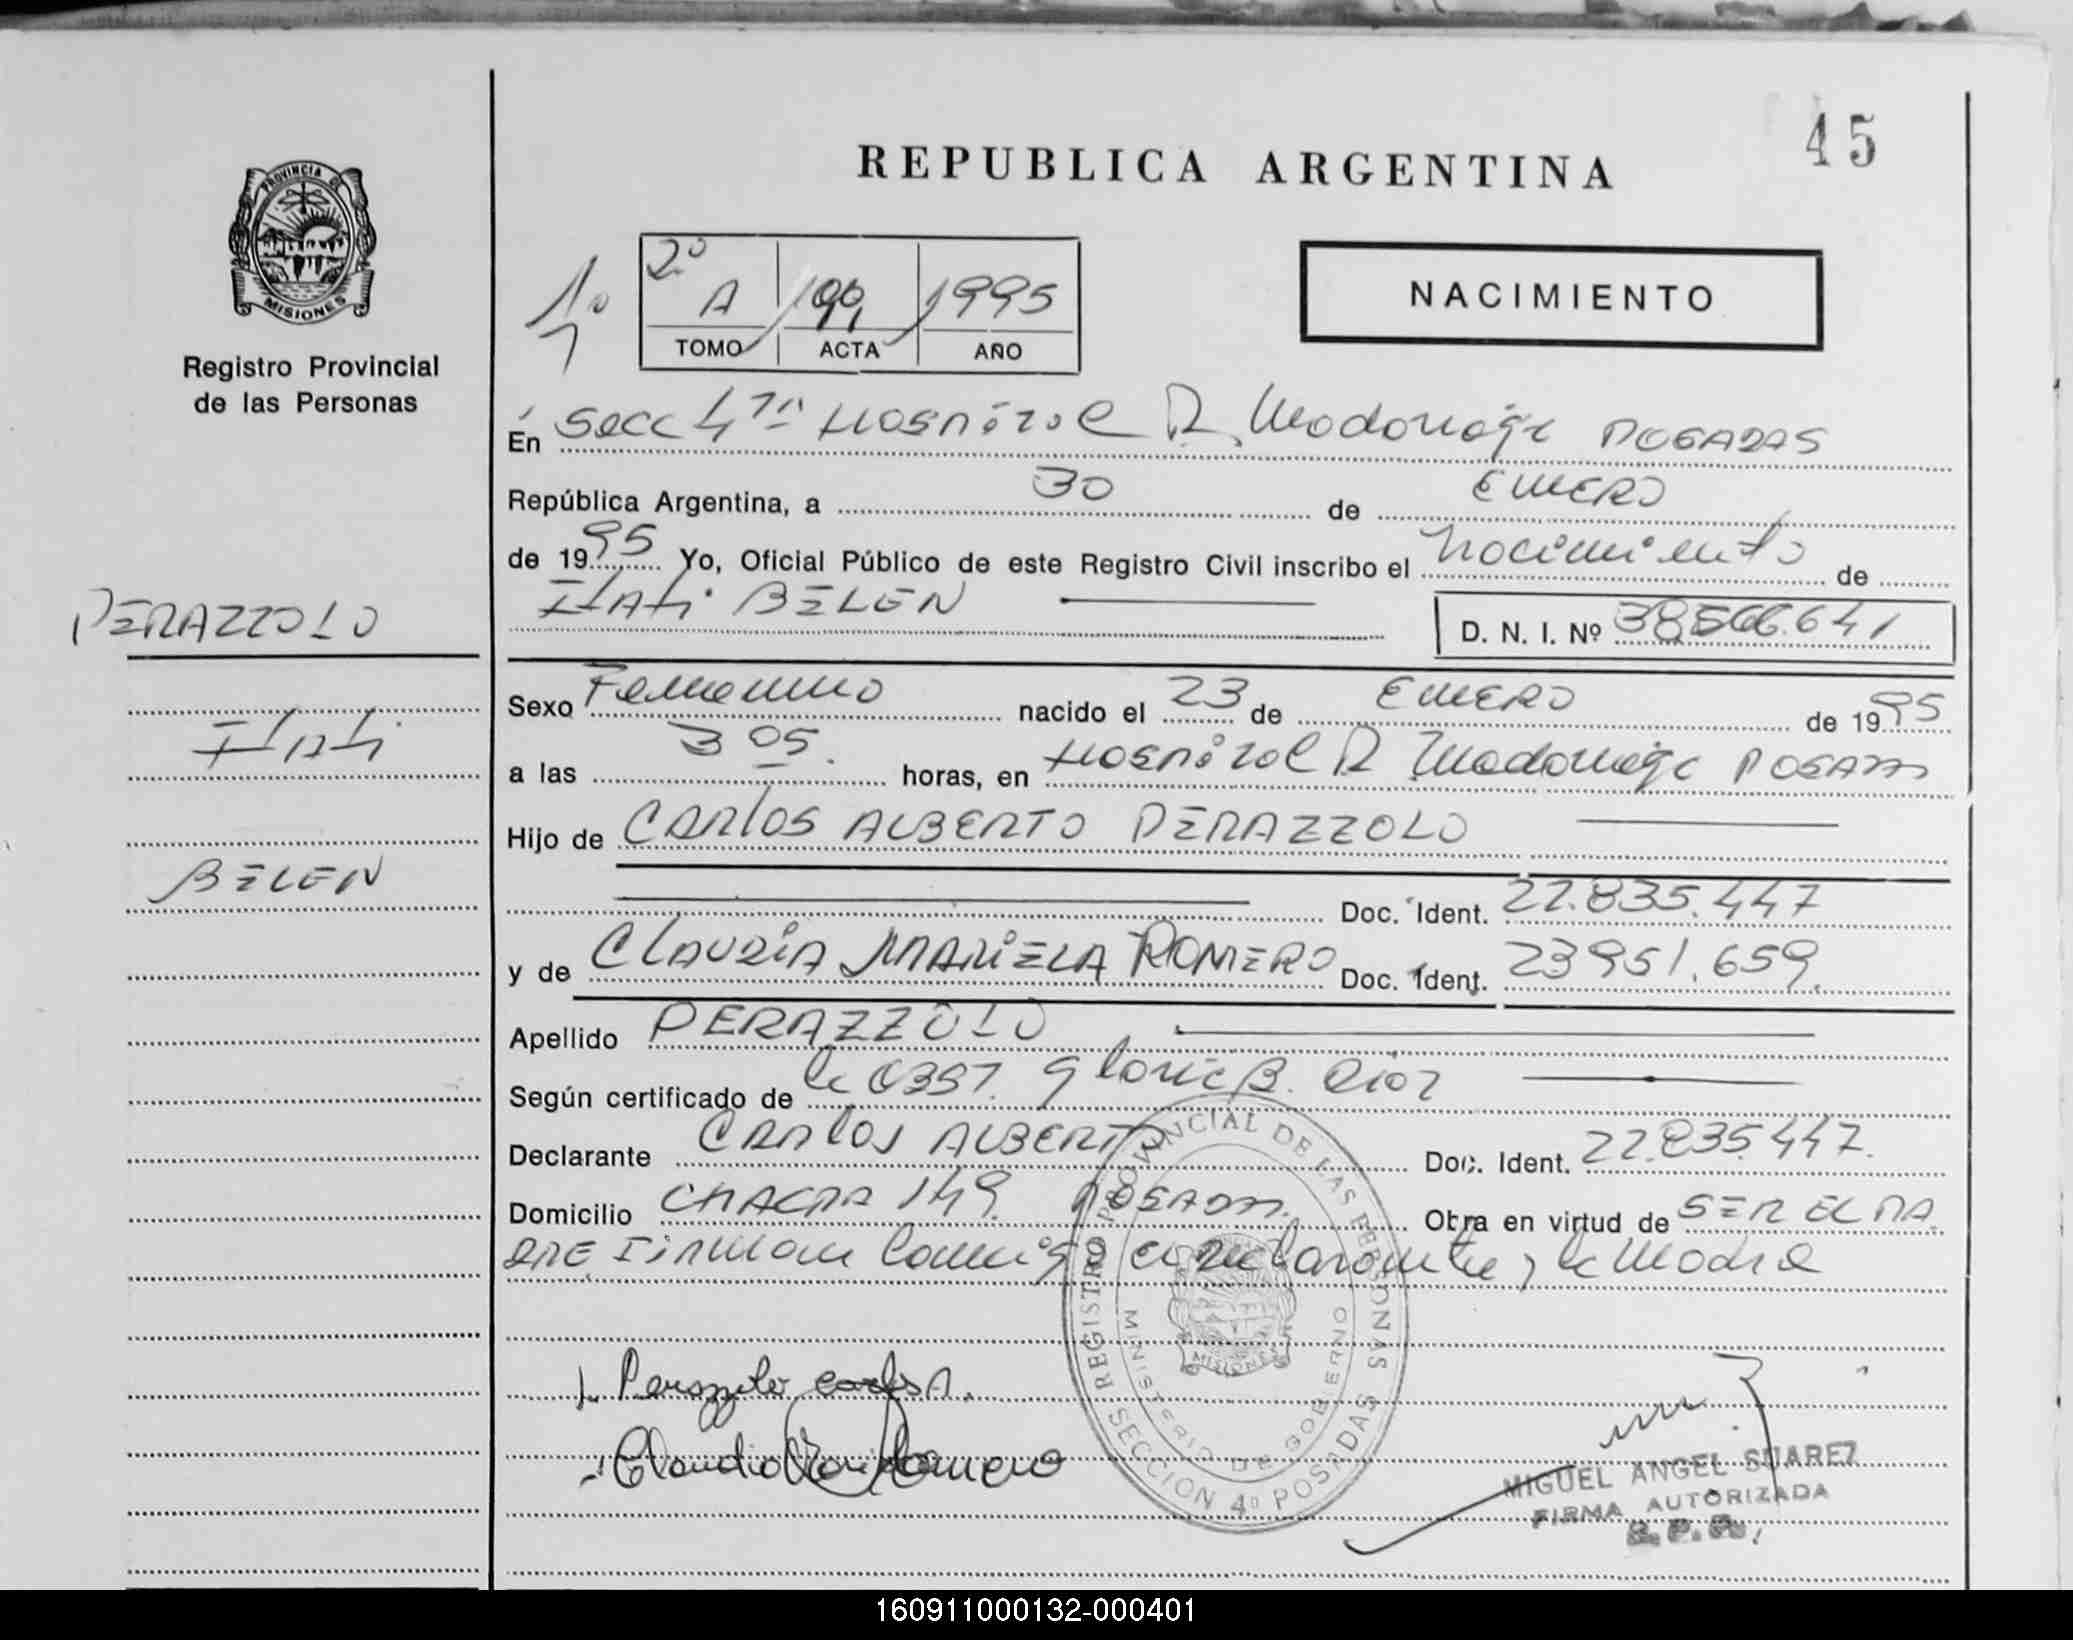 45
REPUBLICA ARGENTINA
PROVINCIA DE
MISIONES
Registro Provincial
de las Personas
1º
2º
A 199 1995
TOMO ACTA AÑO
NACIMIENTO
En Secc 4ta Hospital R. Madariaga POSADAS
República Argentina, a 30 de ENERO
de 1995 Yo, Oficial Público de este Registro Civil inscribo el nacimiento de
Itati BELEN D. N. I. Nº 38.566.641
PERAZZOLO
Itati
BELEN
Sexo Femenino nacido el 23 de ENERO de 1995
a las 3 05. horas, en Hospital R Madariaga POSADAS
Hijo de CARLOS ALBERTO PERAZZOLO
Doc. Ident. 22.835.447
y de CLAUDIA MARIELA ROMERO Doc. Ident. 23951.659.
Apellido PERAZZOLO
Según certificado de la 0357. Gloria B.
Declarante CARLOS ALBERTO Doc. Ident. 22.835.447.
Domicilio CHACRA 149. POSADAS. Obra en virtud de SER EL PA
DRE Firman Conmigo el declarante y la Madre
REGISTRO PROVINCIAL DE LAS PERSONAS
MINISTERIO DE GOBIERNO
MISIONES
SECCION 4º POSADAS
Perazzolo Carlos A.
Claudia Romero
MIGUEL ANGEL SUAREZ
FIRMA AUTORIZADA
R. P. P.
160911000132-000401